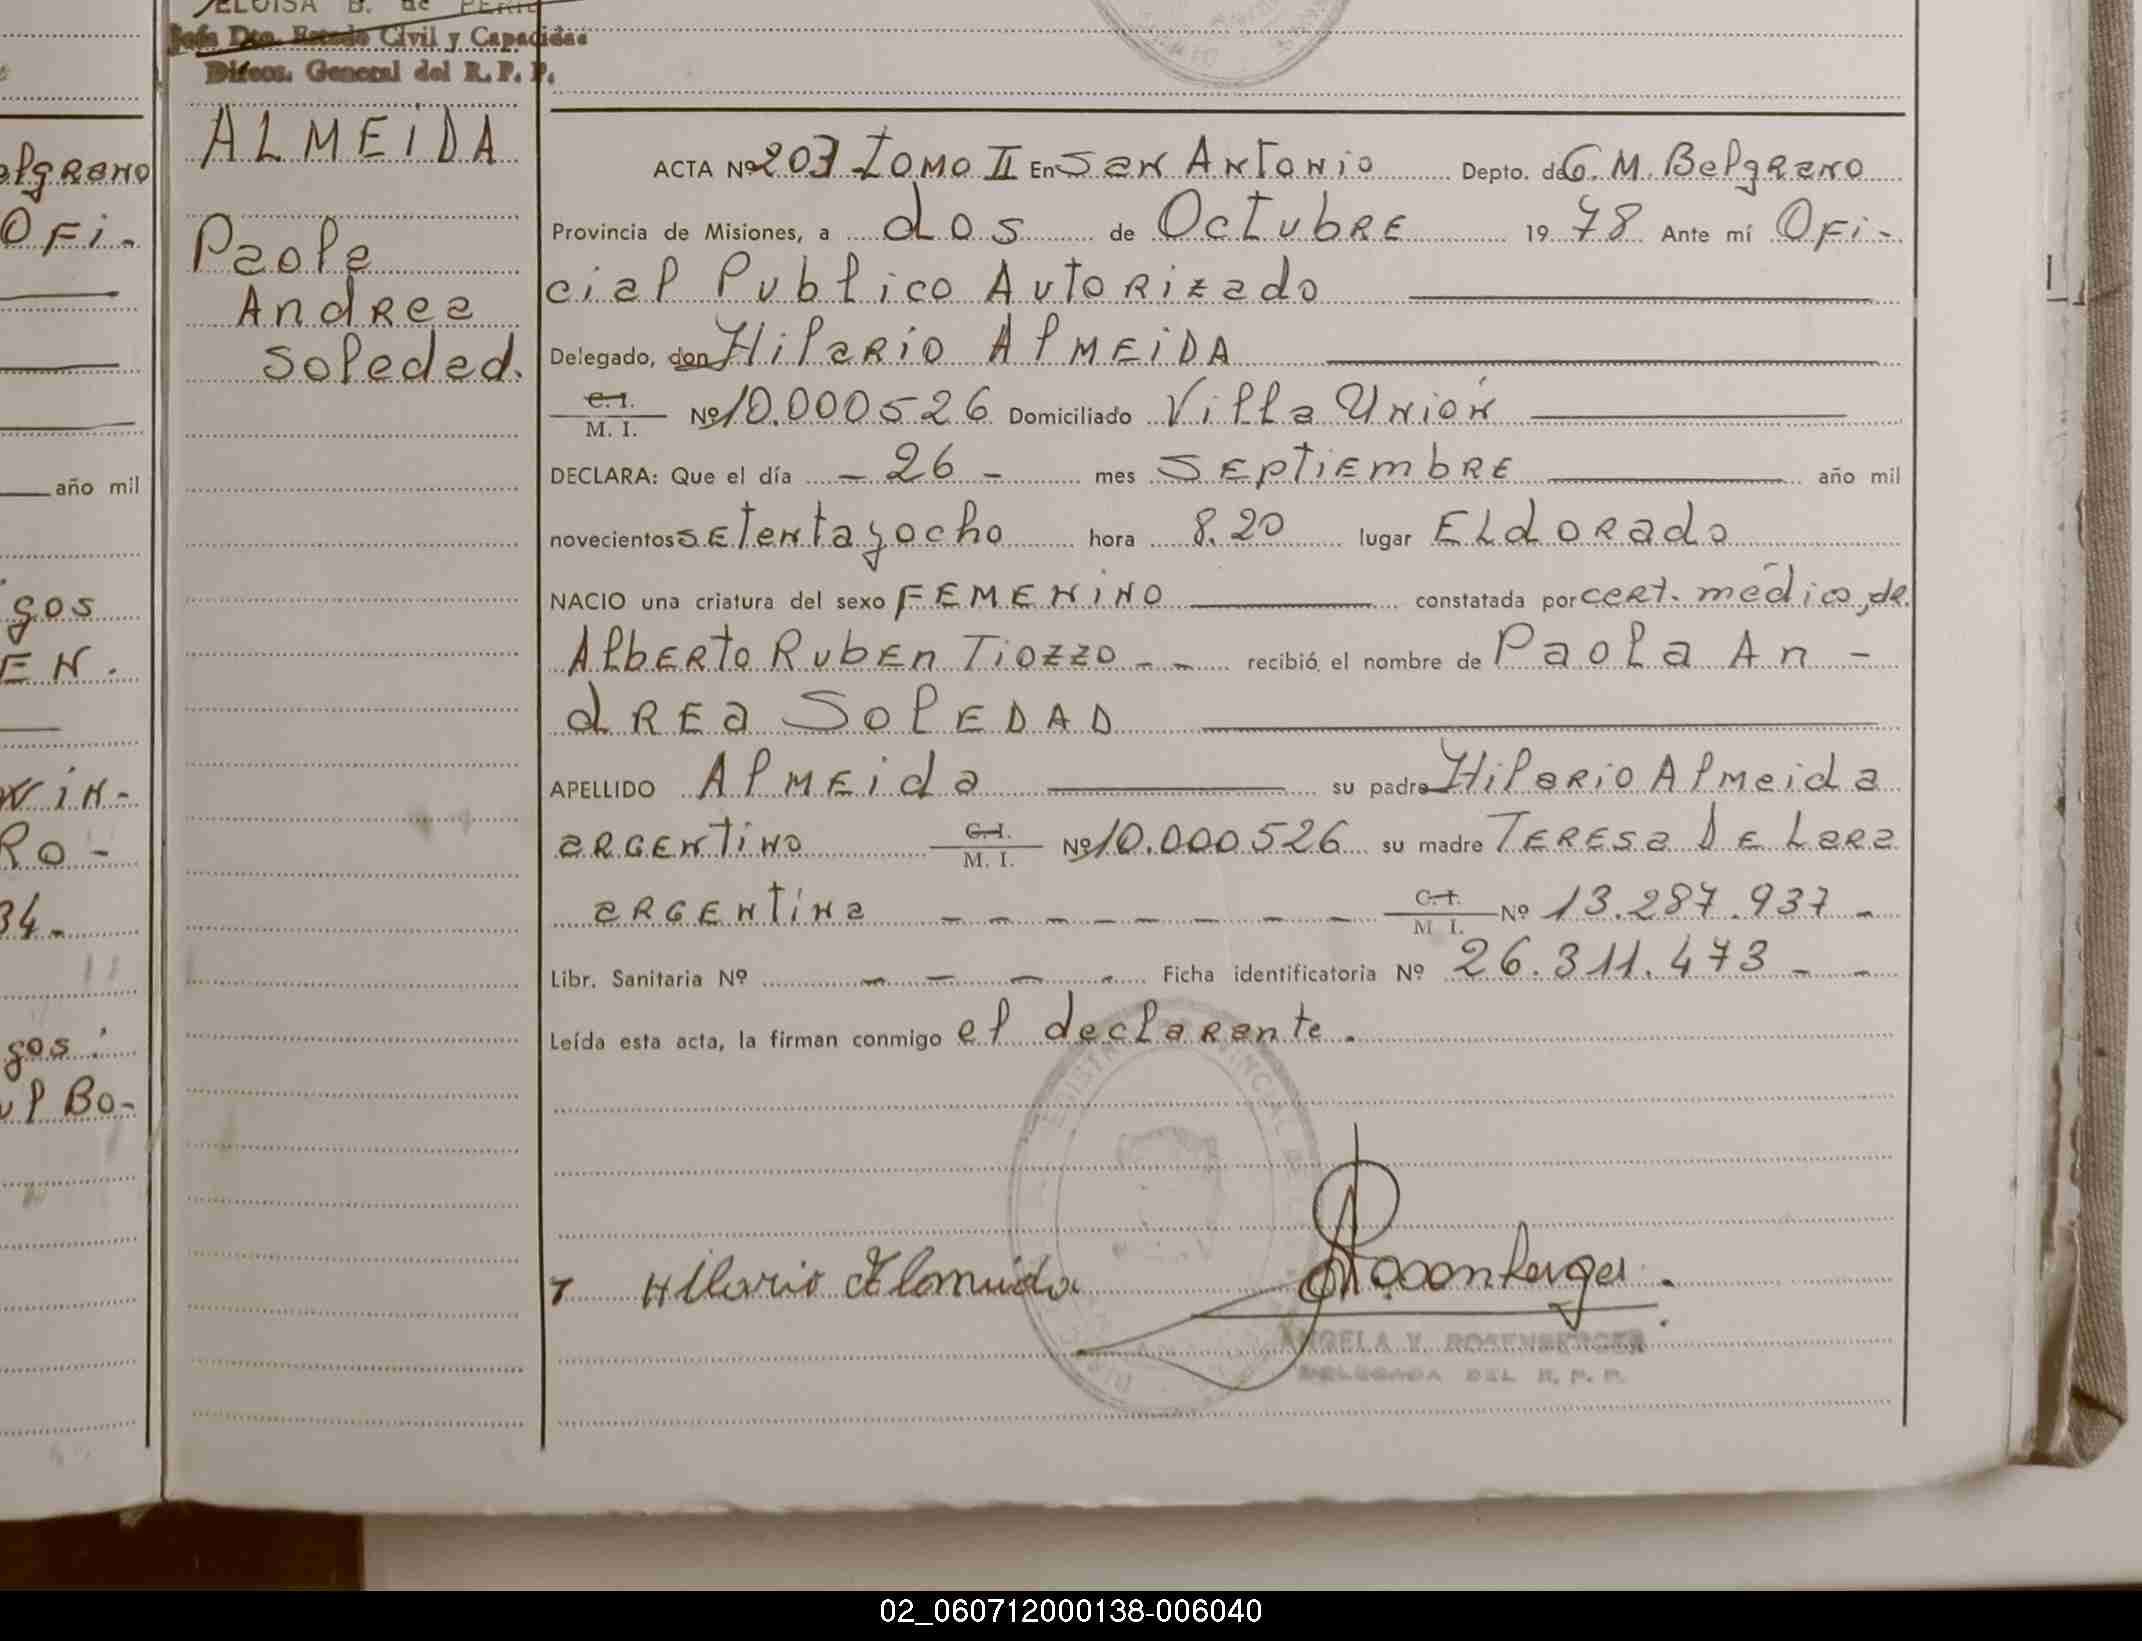 ELOISA B. de
Jefa Dto. Estado Civil y Capacidad
Direcc. General del R. P. P.
ALMEIDA
Paola
Andrea
Soledad.
ACTA Nº 203 Tomo II En San Antonio Depto. de G. M. Belgrano
Provincia de Misiones, a dos de Octubre 19 78 Ante mí Ofi-
cial Publico Autorizado
Delegado, don Hilario Almeida
C. I.
M. I. Nº 10.000526 Domiciliado Villa Unión
DECLARA: Que el día - 26 - mes Septiembre año mil
novecientos setenta y ocho hora 8.20 lugar Eldorado
NACIO una criatura del sexo FEMENINO constatada por cert. médico, de
Alberto Ruben Tiozzo - - recibió el nombre de Paola An -
drea Soledad
APELLIDO Almeida su padre Hilario Almeida
argentino C. I.
M. I. Nº 10.000526 su madre Teresa De Lara
argentina - - - - - - - C. I.
M. I. Nº 13.287.937 -
Libr. Sanitaria Nº - - - - Ficha identificatoria Nº 26.311.473 - -
Leída esta acta, la firman conmigo el declarante.
Hilario Almeida
Rosenberger
ANGELA V. ROSENBERGER
DELEGADA DEL R. P. P.
elgrano
Ofi-
año mil
gos
EN.
Ro-
34-
gos.
Bo-
02_060712000138-006040